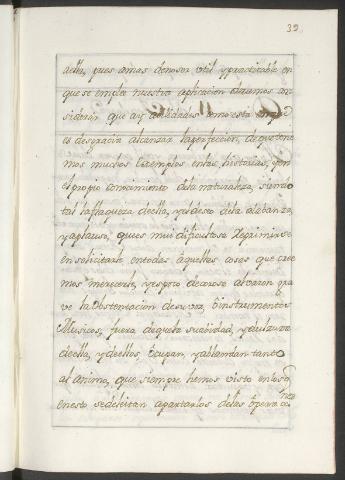 39
della, pues amas denoser util y practicable en
que se emplee nuestra aplicacion devemos con-
siderar que ay
es desgracia alcanzar la perfeccion, de que tene
mos muchos Exemplos enlas historias, y en
el propio conocimiento dela naturaleza, siendo
tal la flaqueza della, y el deseo dela alabanza,
y aplauso, que es mui dificultoso Reprimirse
en solicitarle entodas aquellas cosas que cree
mos mereçerle, y espoco decoroso alvaron gra
ve la obstentacion desu voz, è instrumentos
Musicos, fuera de que la suavidad, y dulzura
de ella, y dellos, ocupan, y ablandan tanto
al animo, que siempre hemos visto enlos q
enesto se deleitan apartarlos delas operacio
nes